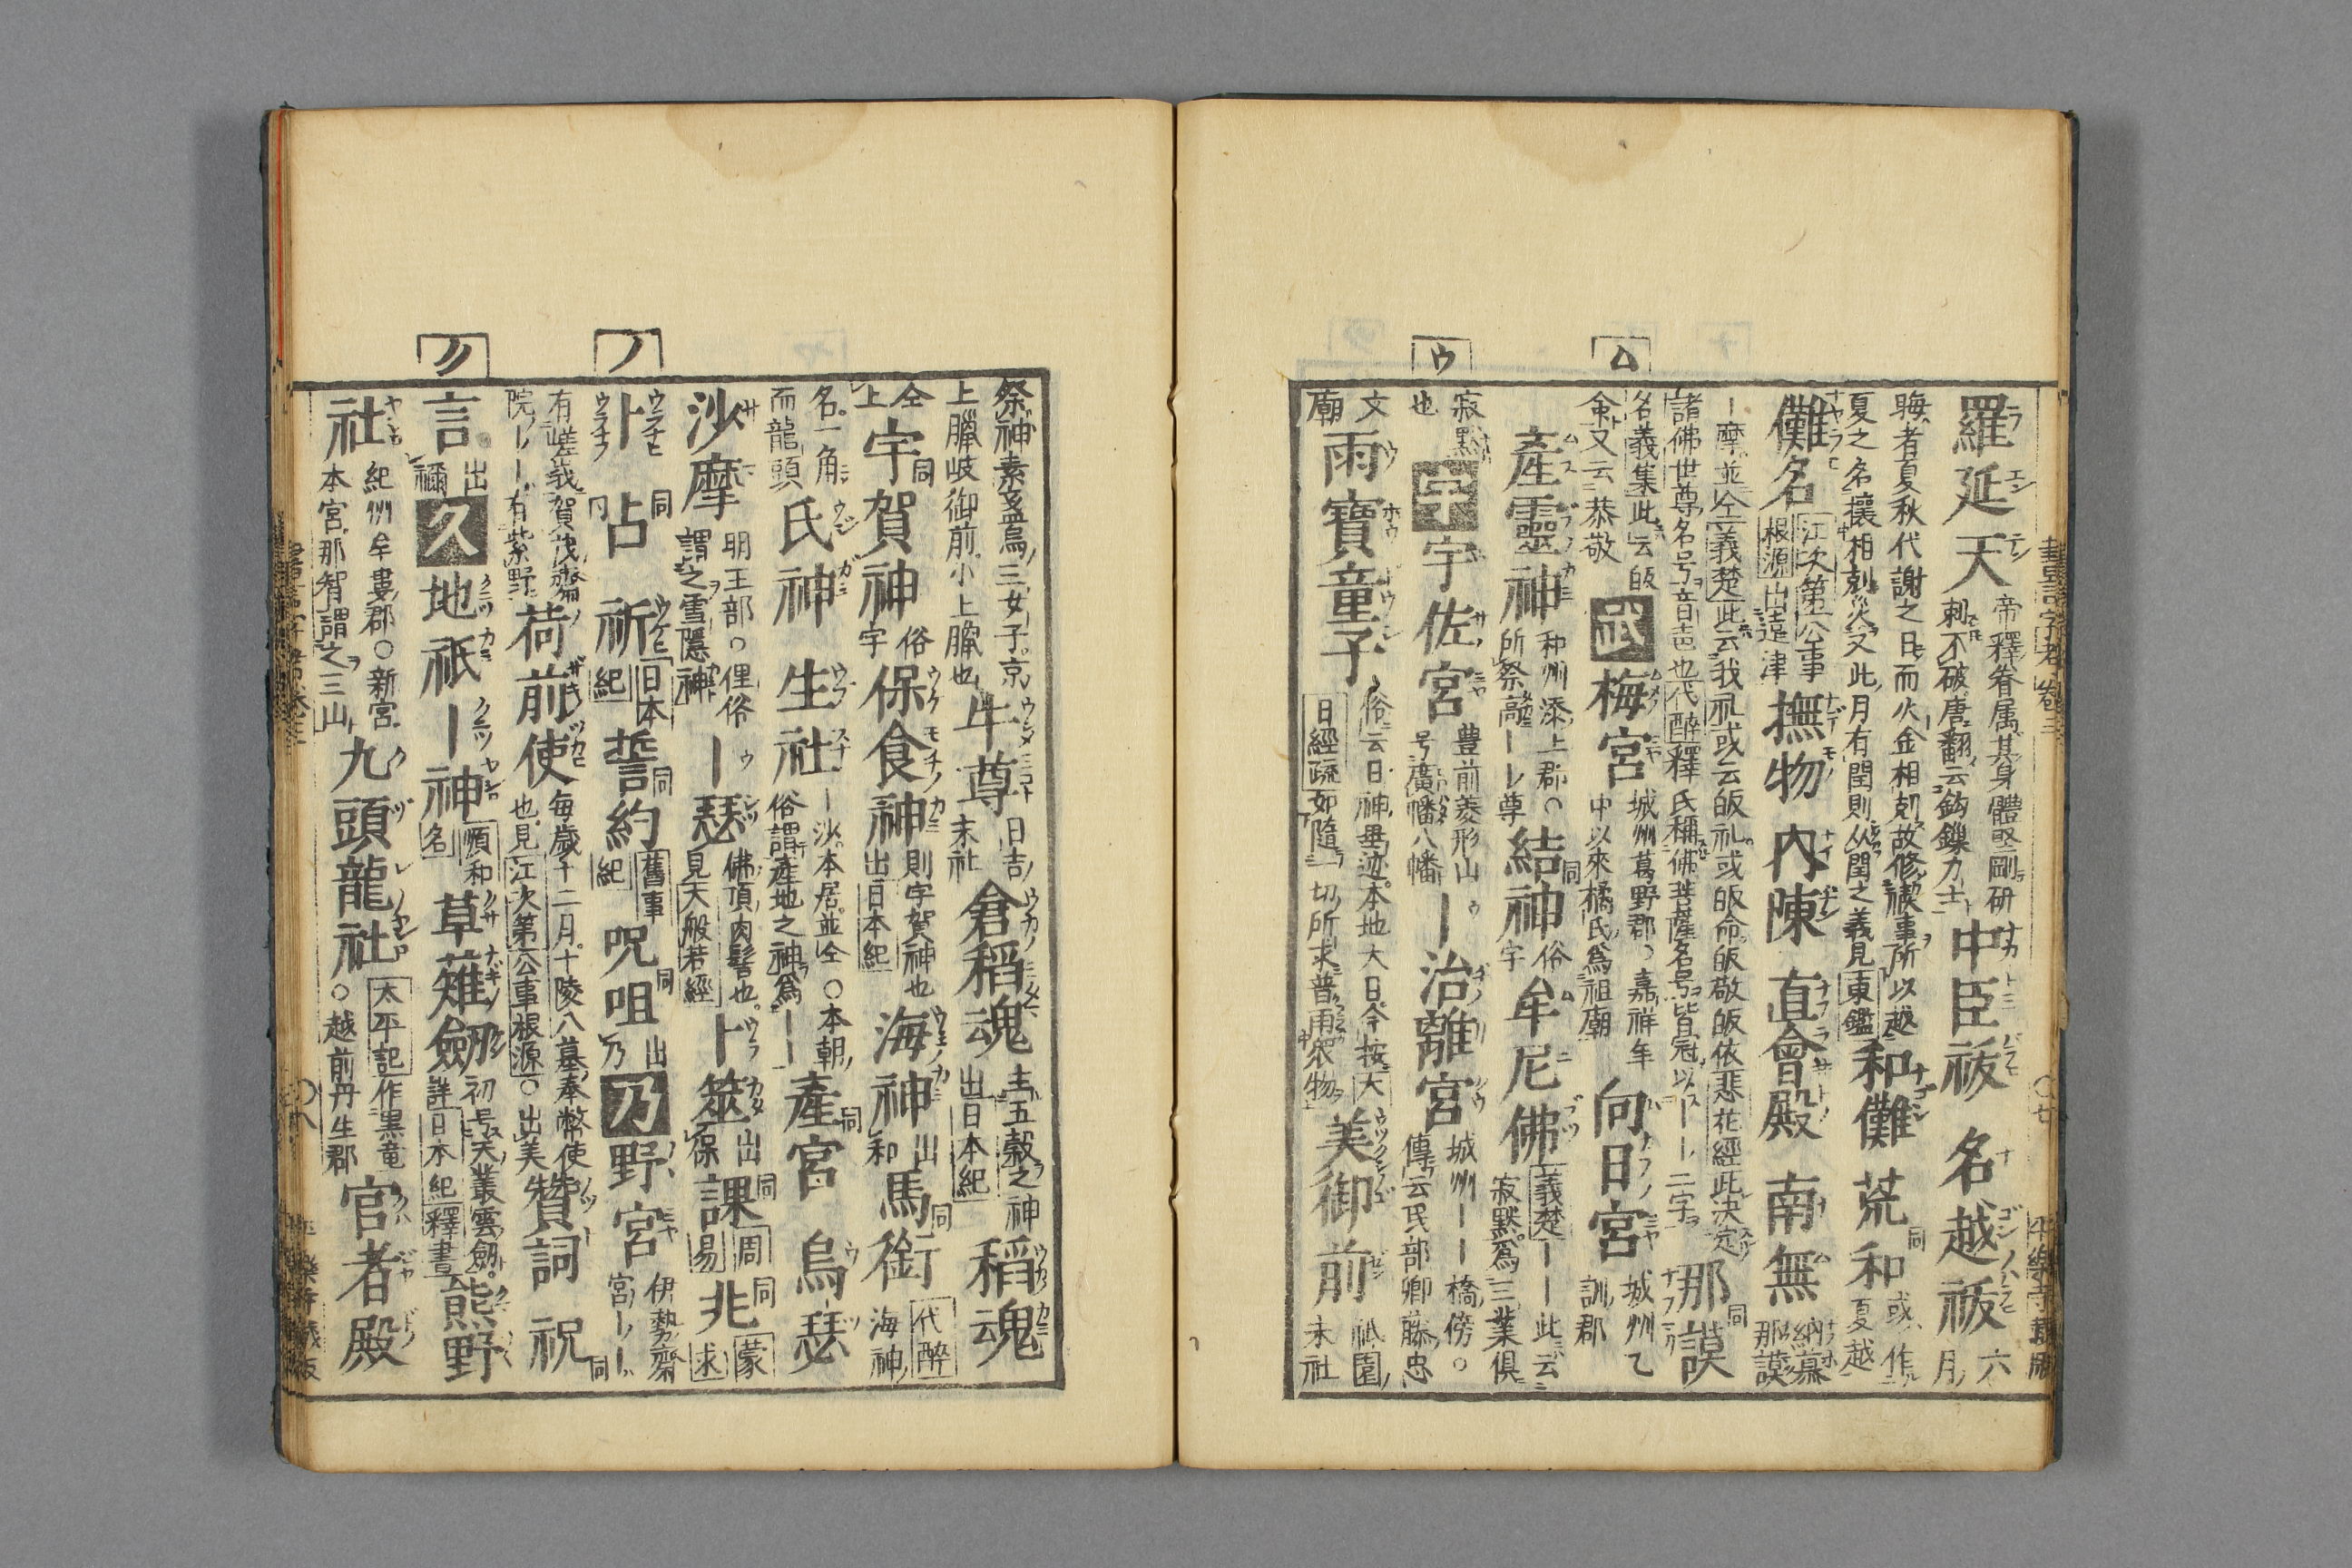 ム
ウ
羅延天 帝釋眷属其身體堅剛研
刺不破唐翻云鈎鏁力士 中臣祓 名越祓 六
月
晦者夏秋代謝之日而火金相剋故修禊事所以越
夏之名攘相剋災又此月有閏則从閏之義見東鑑 和儺 荒和 同 或作
夏越
儺名 江次第公事
根源出遠津 撫物 内陳 直會殿 南無 納慕
那謨
ー摩並仝義楚此云我礼或云皈礼或皈命皈敬皈依悲花經此決定
諸佛世尊名号音声也代醉釋氏稱佛菩薩名号皆冠以ーー二字 那謨 同
名義集此云皈
命又云恭敬 武 梅宮 城州葛野郡○嘉祥年
中以來橘氏爲祖廟 向日宮 城州乙
訓郡
產靈神 和州添上郡○
所祭高ーー尊 結神 同 俗
字 牟尼佛 義楚ーー此云
寂默爲三業俱
寂默
也 宇 宇佐宮 豊前菱形山
号廣幡八幡 ー治離宮 城州ーー橋傍○
傳云民部卿藤忠
文
廟 雨寶童子 俗云日神垂迹本地大日今按大
日經疏如隨一切所求普雨衆物 美御前 祇園
末社
ノ
ク
祭神素盞烏三女子京
上臈岐御前小上臈也 牛尊 日吉
末社 倉稻魂 主五穀之神
出日本紀 稻魂
仝
上 宇賀神 同 俗
字 保食神 則宇賀神也
出日本紀 海神 出
和 馬銜 同 代醉
海神
名一角
而龍頭 氏神 生社 ー沙本居並仝○本朝
俗謂產地之神爲ーー 產宮 同 烏瑟
沙摩 明王部○俚俗
謂之雪隱神 ー瑟 佛頂肉髻也
見大般若經 卜筮 出
保 課 同 周
易 兆 同 蒙
求
卜 占 同 祈 日本
紀 誓約 同 舊事
紀 呪咀 同 出
乃 野宮 伊勢齋
宮ーー
有嵯峨賀茂齋
院ーー有紫野 荷前使 每歲十二月十陵八墓奉幣使
也見江次第公事根源○出美 贊詞 祝 同
言 出
禰 久 地祇 ー神 順和
名 草薙劔 初号天叢雲劔
詳日本紀釋書 熊野
社 紀州牟婁郡○新宮
本宮那智謂之三山 九頭龍社 太平記作黒竜
○越前丹生郡 官者殿